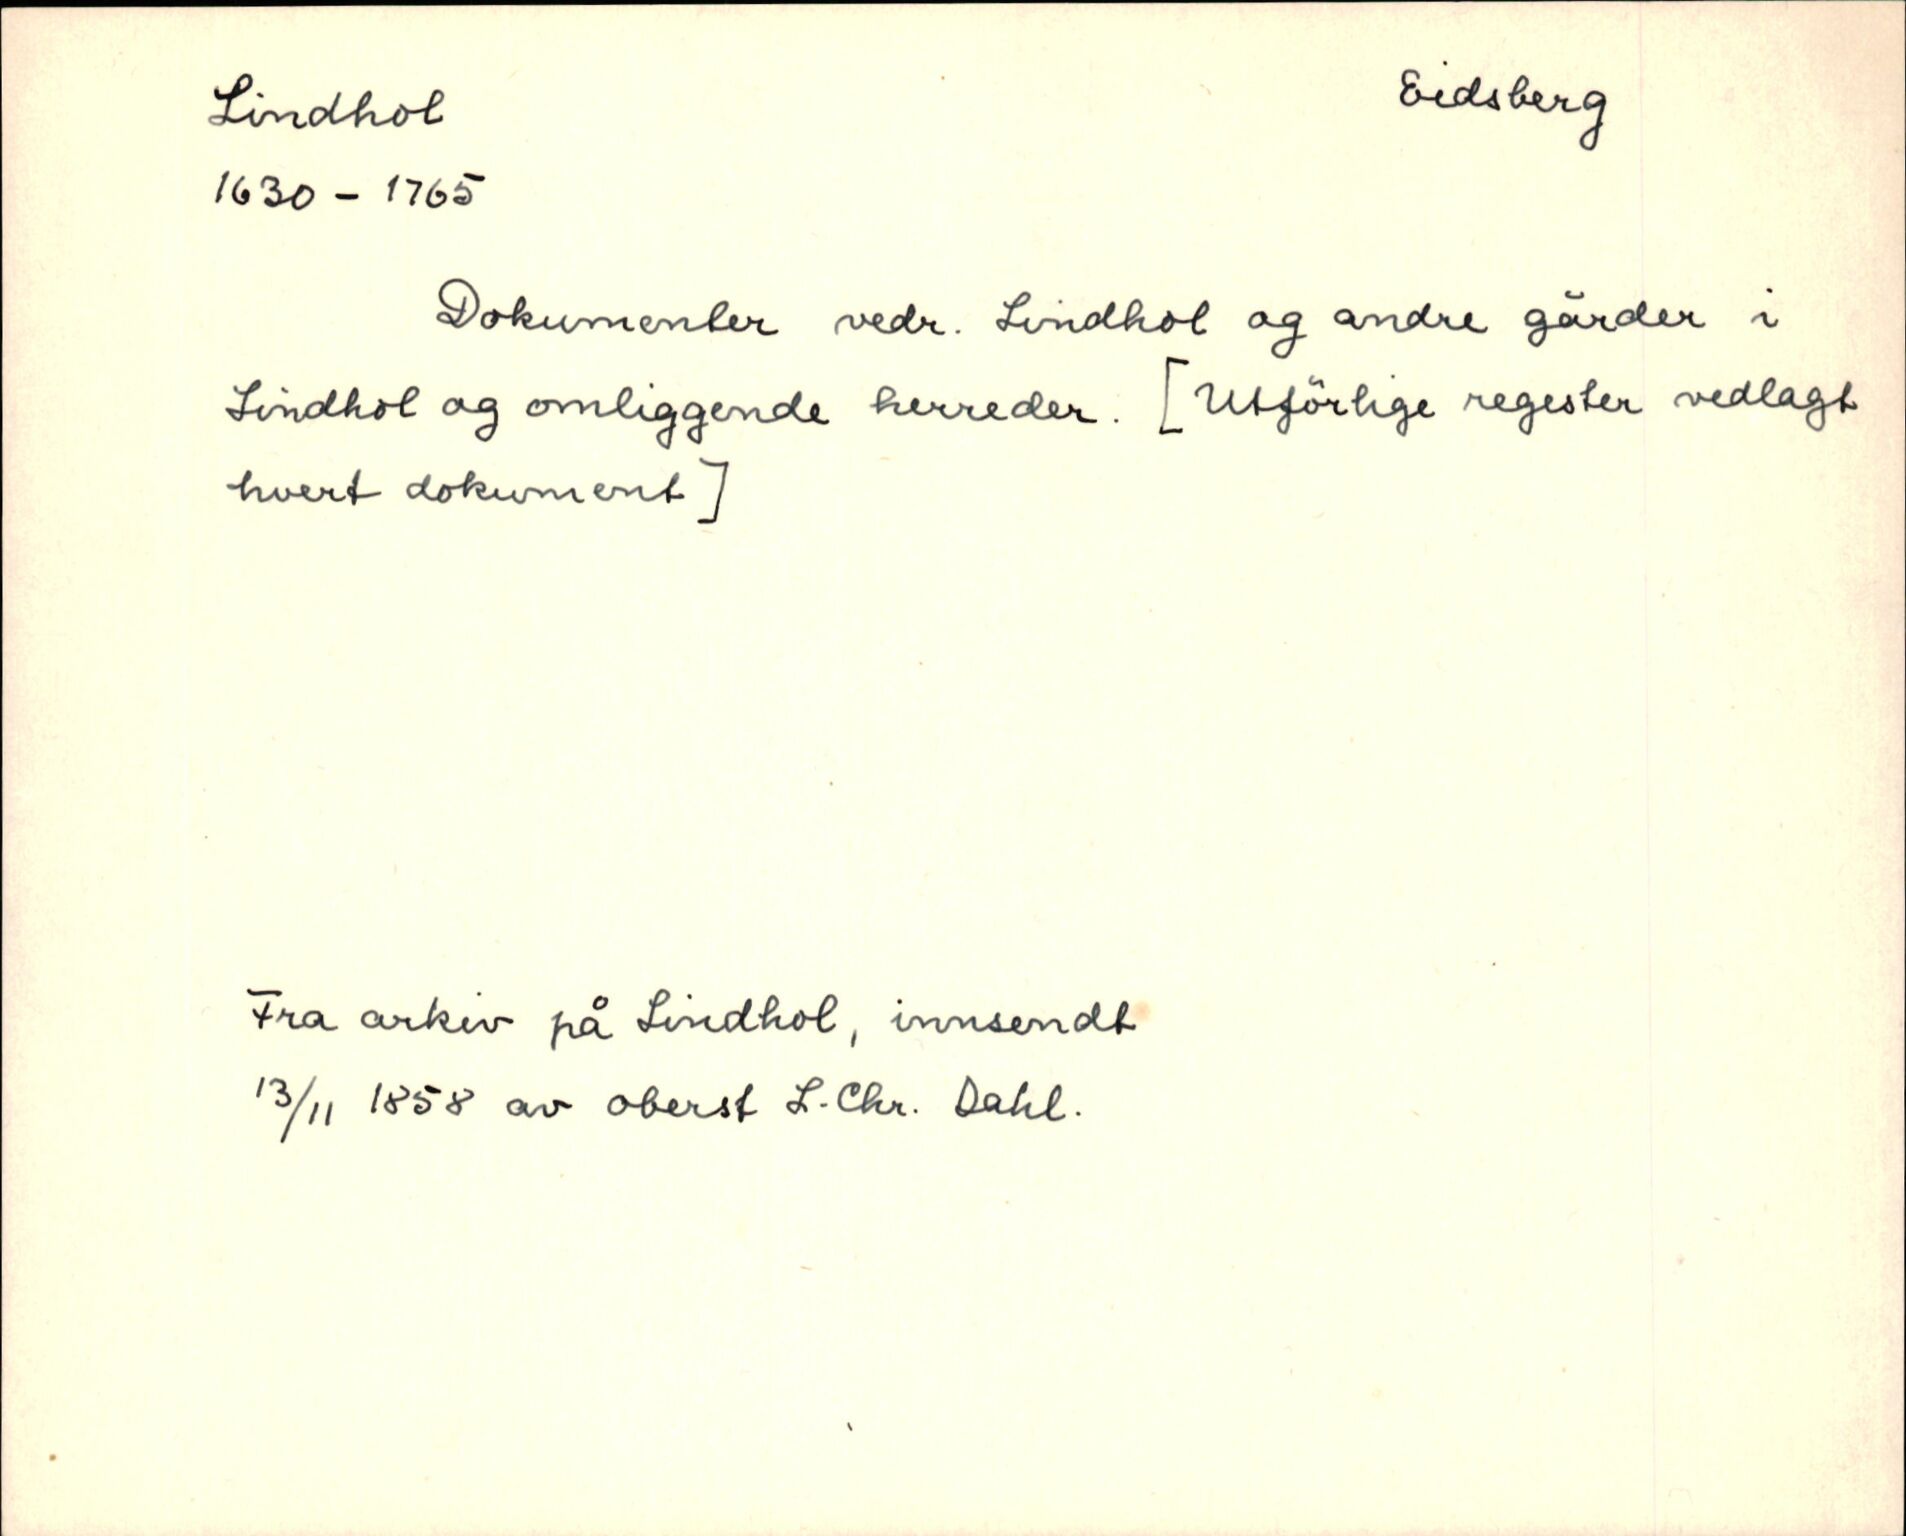 Lindhol
Eidsberg
1630 - 1765
Dokumenter vedr. Lindhol og andre gårder i
Lindhol og omliggende herreder. [Utförlige regester vedlagt
hvert dokument]
Fra arkiv på Lindhol, innsendt
13/11 1858 av oberst L. Chr. Dahl.